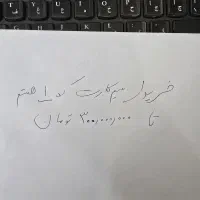 خریدار سیم‌کارت کد ۱ هستم
تا ۳۰۰,۰۰۰,۰۰۰ تومان